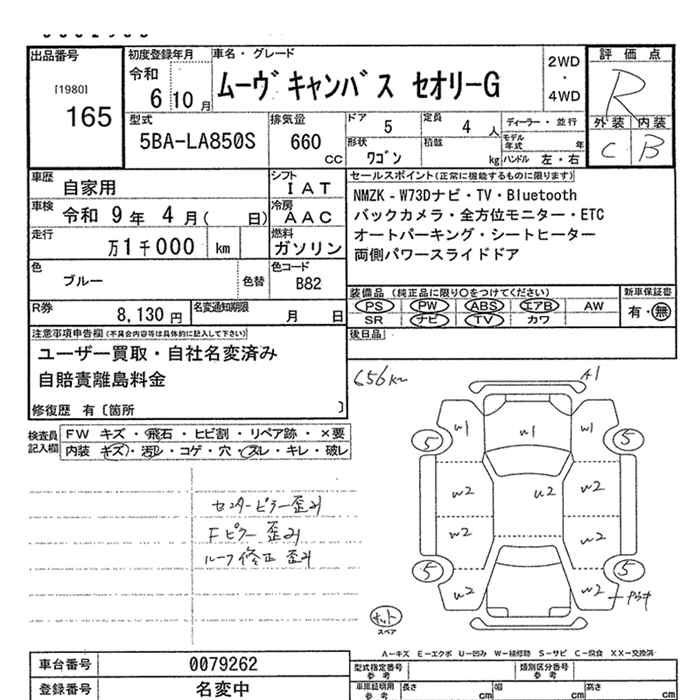 出品番号
[1980]
165
初度登録年月
令和
6 10 月
車名・グレード
ムーヴ キャンバス セオリーG
2WD
・
4WD
評価点
R
外装 内装
C B
型式
5BA-LA850S
排気量
660
CC
ドア 5
定員 4 人
形状
ワゴン
積載
kg
ディーラー・並行
モデル
年式 年
ハンドル 左・右
車歴
自家用
シフト
IAT
車検
令和 9 年 4 月( 日)
冷房
AAC
走行
万1千000 km
燃料
ガソリン
色
ブルー
色替
色コード
B82
R券
8,130 円
名変通知期限
月 日
セールスポイント(正常に機能するものに限ります)
NMZK-W73Dナビ・TV・Bluetooth
バックカメラ・全方位モニター・ETC
オートパーキング・シートヒーター
両側パワースライドドア
装備品 (純正品に限り○をつけてください)
PS PW ABS エアB AW
SR ナビ TV カワ
新車保証書
有・無
後日品
注意事項申告欄(不具合内容等は具体的に記入して下さい)
ユーザー買取・自社名変済み
自賠責離島料金
修復歴 有〔箇所 〕
検査員
記入欄
FW キズ・飛石・ヒビ割・リペア跡・×要
内装 キズ・汚レ・コゲ・穴・スレ・キレ・破レ
センターピラー歪み
Fピラー歪み
ルーフ修正歪み
656km
A1
W1 W1 W1
5 5
W2 U2 W2
W2 W2
5 5
U2 W2
スペア
A-キズ E-エクボ U-凹み W-補修跡 S-サビ C-腐食 XX-交換済
車台番号
0079262
登録番号
名変中
型式指定番号
参考
類別区分番号
参考
車庫証明用
参考
長さ cm
幅 cm
高さ cm